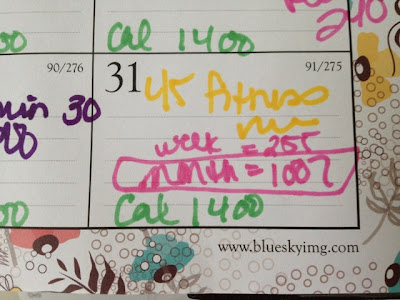 00
Cal 1400
90/276
31
91/275
min 30
45 fitness
min
week = 255
month = 1007
00
Cal 1400
www.blueskyimg.com